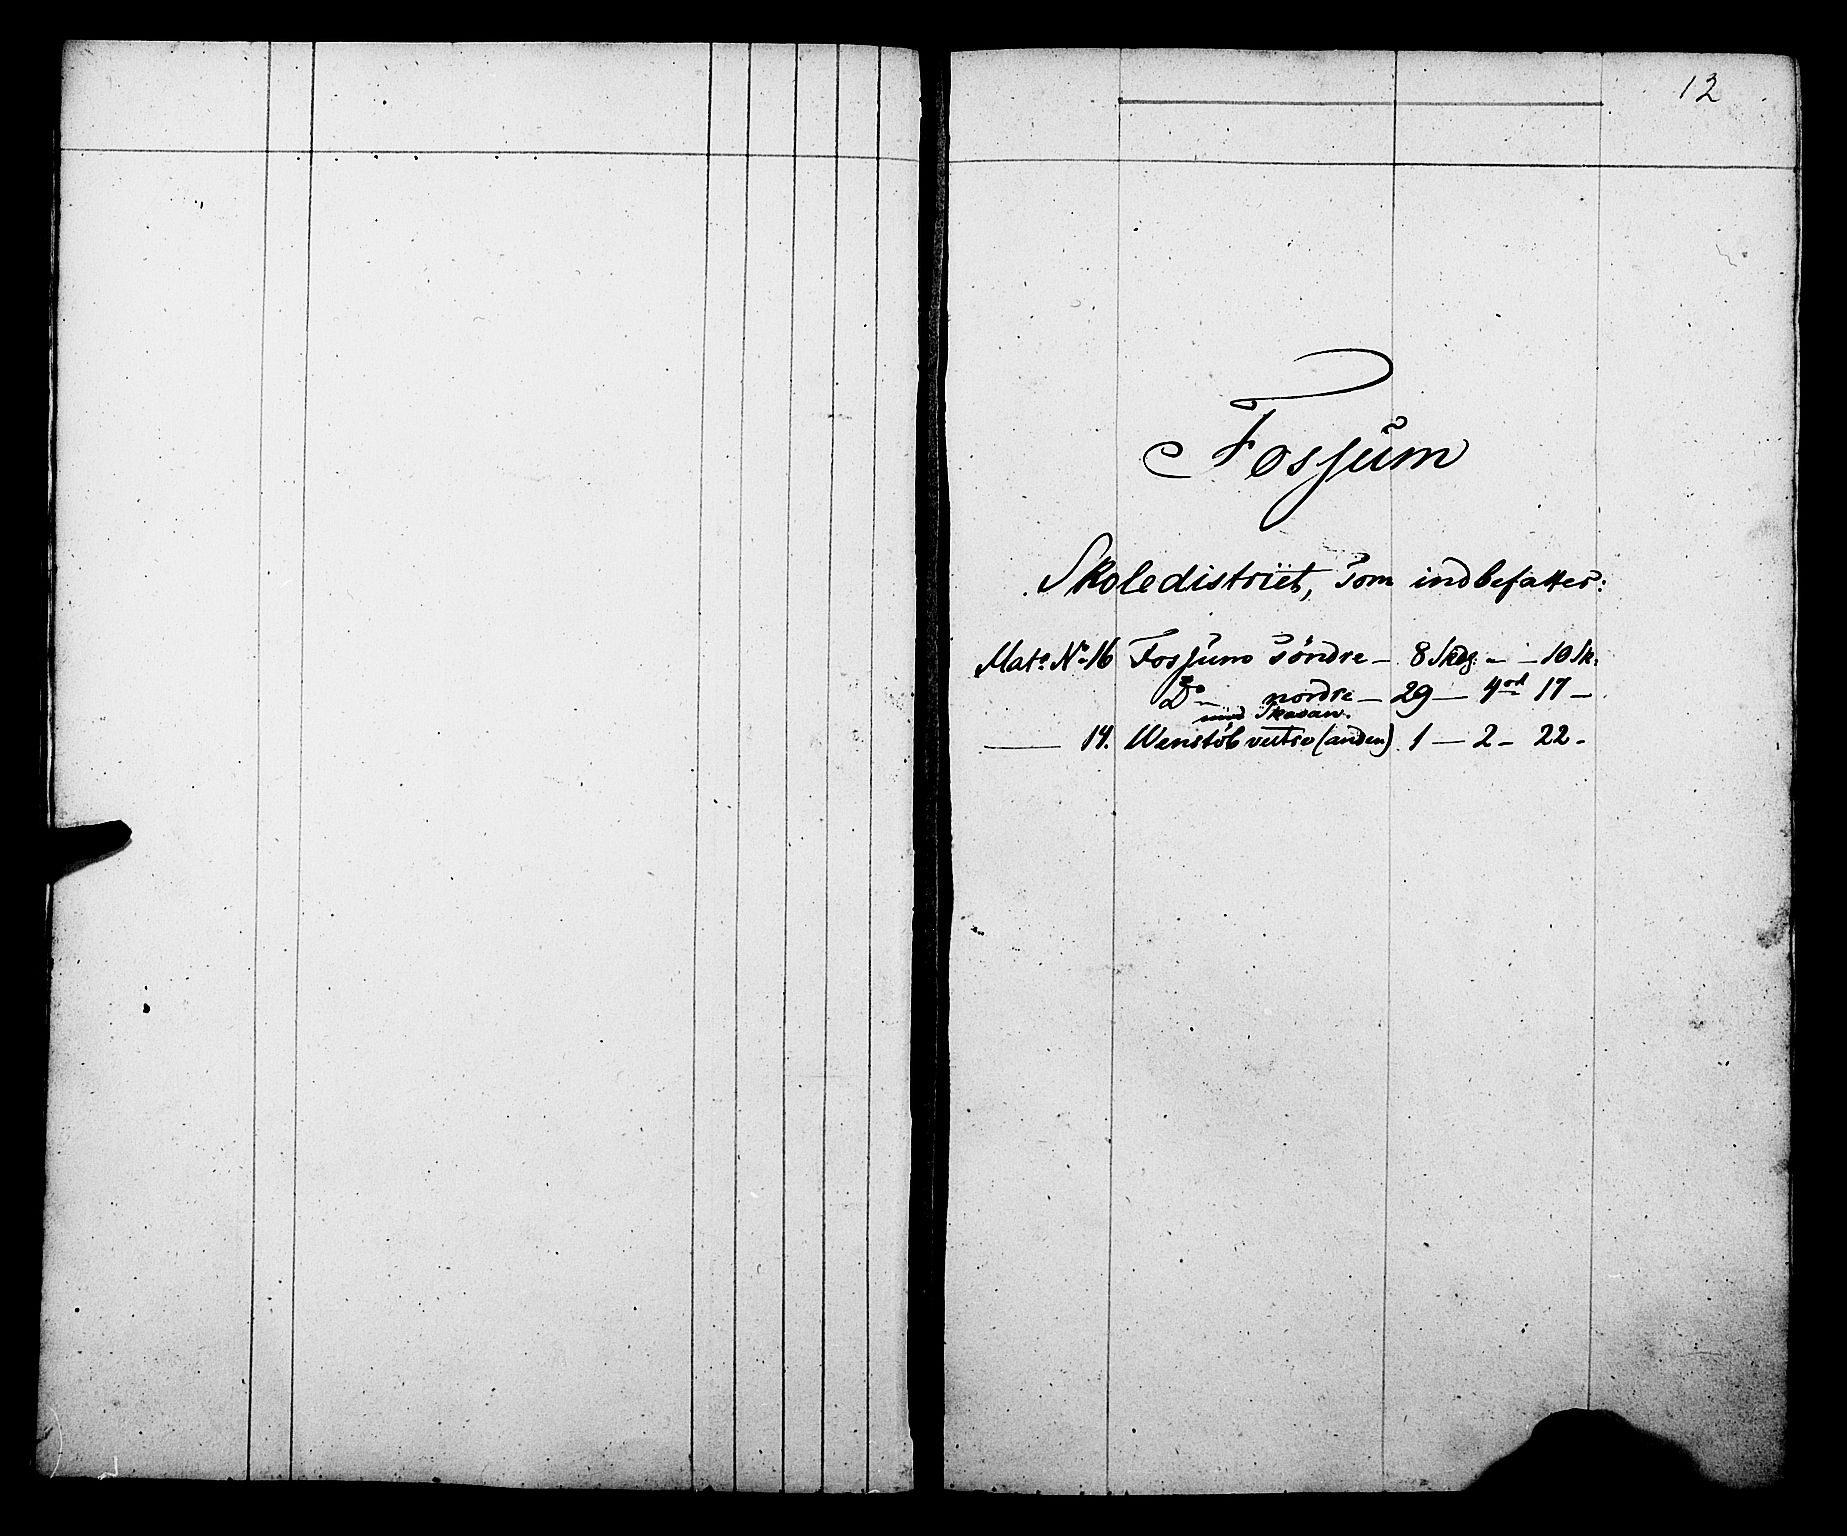 12
Fossum
Skoledistrict, som indbefatter:
Mat. No 16 Fossum söndre – 8 Skdg. – – 10 Sk.
Do – nordre – 29 – 4 ort 17 –
med
14. Wenstöb vestre (anden) 1 – 2 – 22 –